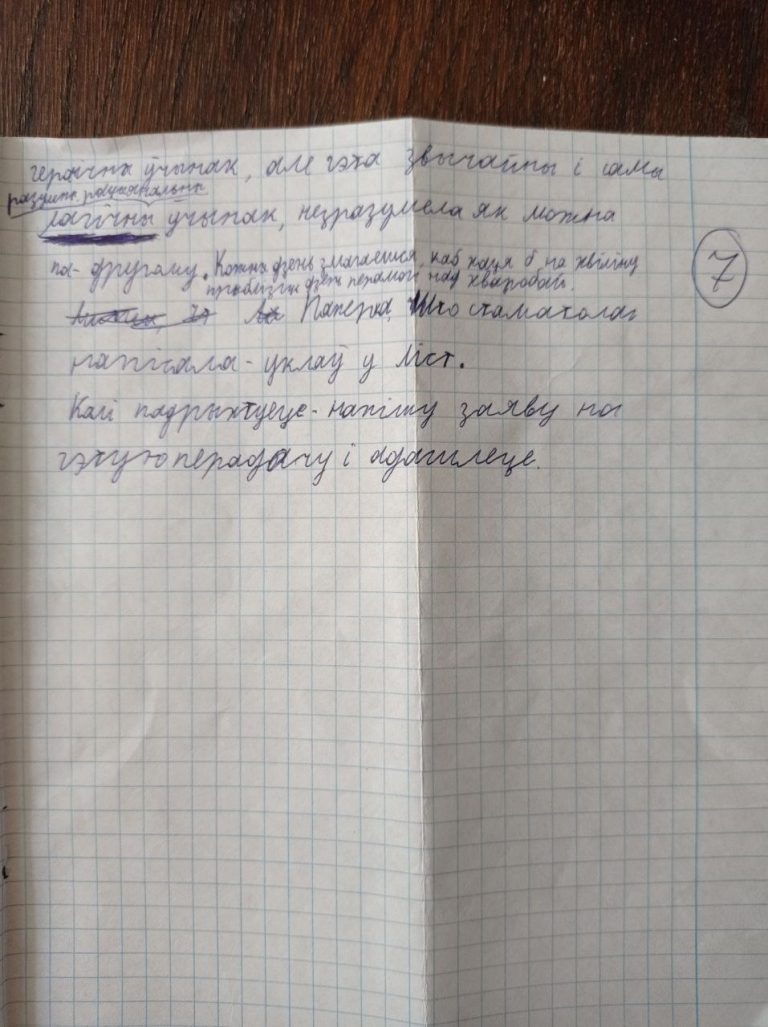 герачны ўчынак, але гэта звычайны і самы
разумны, рацыянальны
лагічны ўчынак, незразумела як можна
па-другому. Кожны дзень змагаешся, каб хаця б на хвіліну
прыблізіць дзень перамогі над хваробай.
7
Паперка, што стаматолаг
напісала - уклаў у ліст.
Калі падрыхтуеце - напішу заяву на
гэтую перадачу і адашлеце.